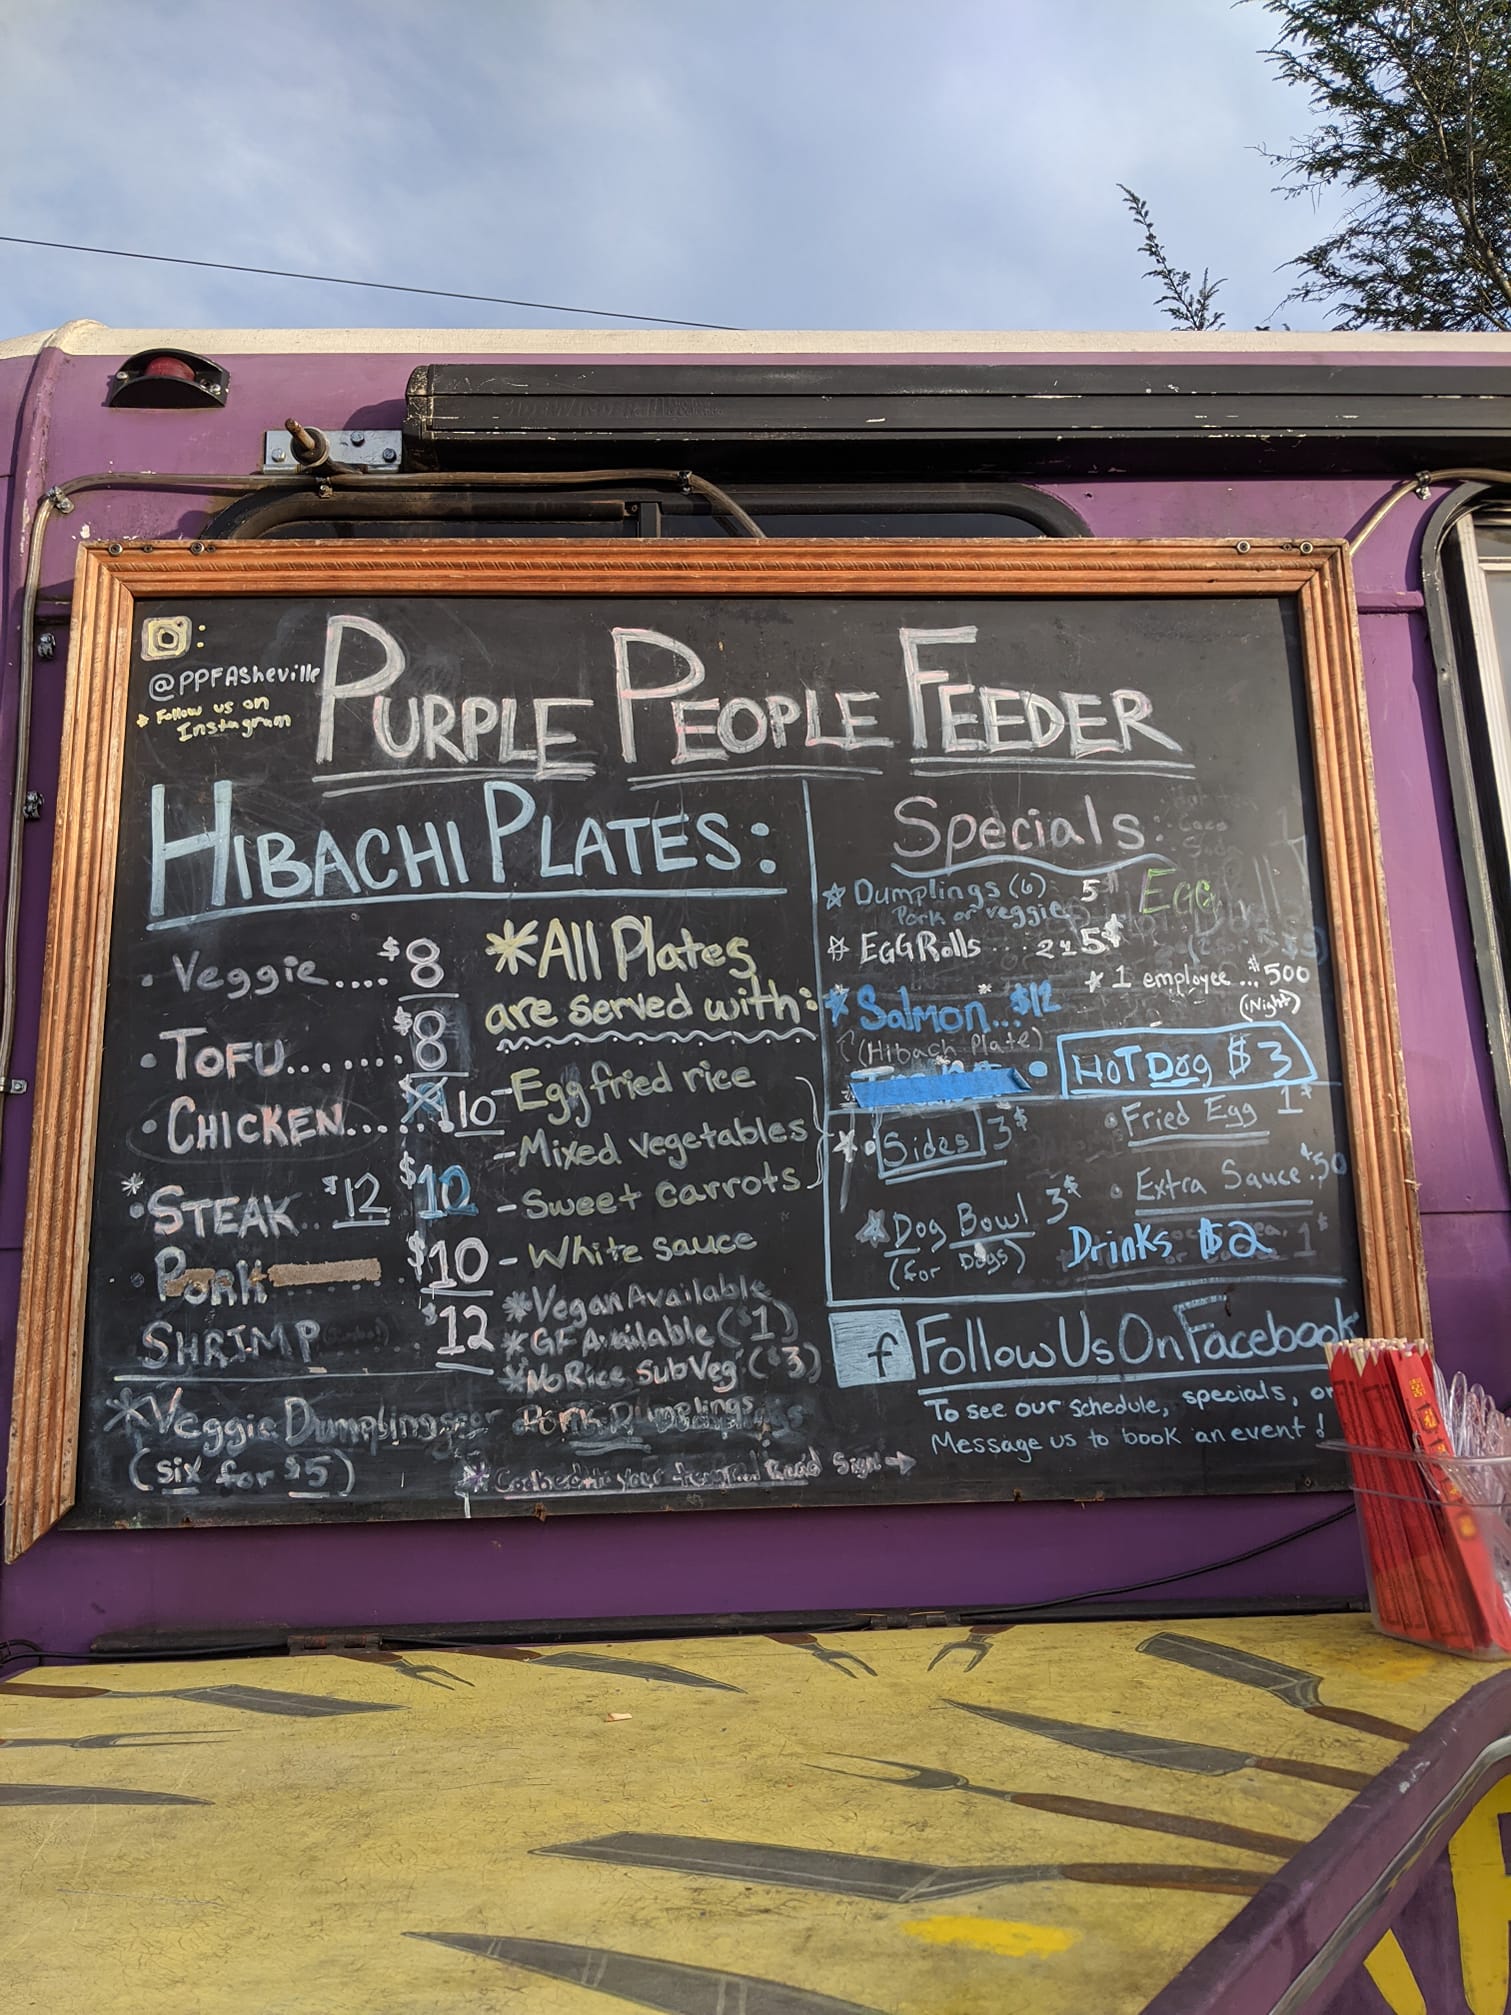 @PPFAsheville
* Follow us on
Instagram
PURPLE PEOPLE FEEDER
HIBACHI PLATES:
• Veggie.... $8
• TOFU...... $8
• CHICKEN..... 10
* • STEAK.. $12 $10
• Pork $10
SHRIMP $12
*Veggie Dumplings or Pork Dumplings
(six for $5)
*All Plates
are served with:
- Egg fried rice
- Mixed vegetables
- Sweet carrots
- White sauce
*Vegan Available
*GF Available ($1)
*No Rice Sub Veg ($3)
Read Sign →
Specials:
☆ Dumplings (6) 5$
Pork or veggie
Egg
☆ EGG Rolls ... 2 4 5$
* 1 employee ... $500
(1 Night)
* Salmon... $12
(Hibachi Plate)
• HOT DOG $3
* • Sides 3$
• Fried Egg 1$
• Extra Sauce $.50
☆ Dog Bowl 3$
(for Dogs)
Drinks $2
f Follow Us On Facebook
To see our schedule, specials, or
Message us to book an event!